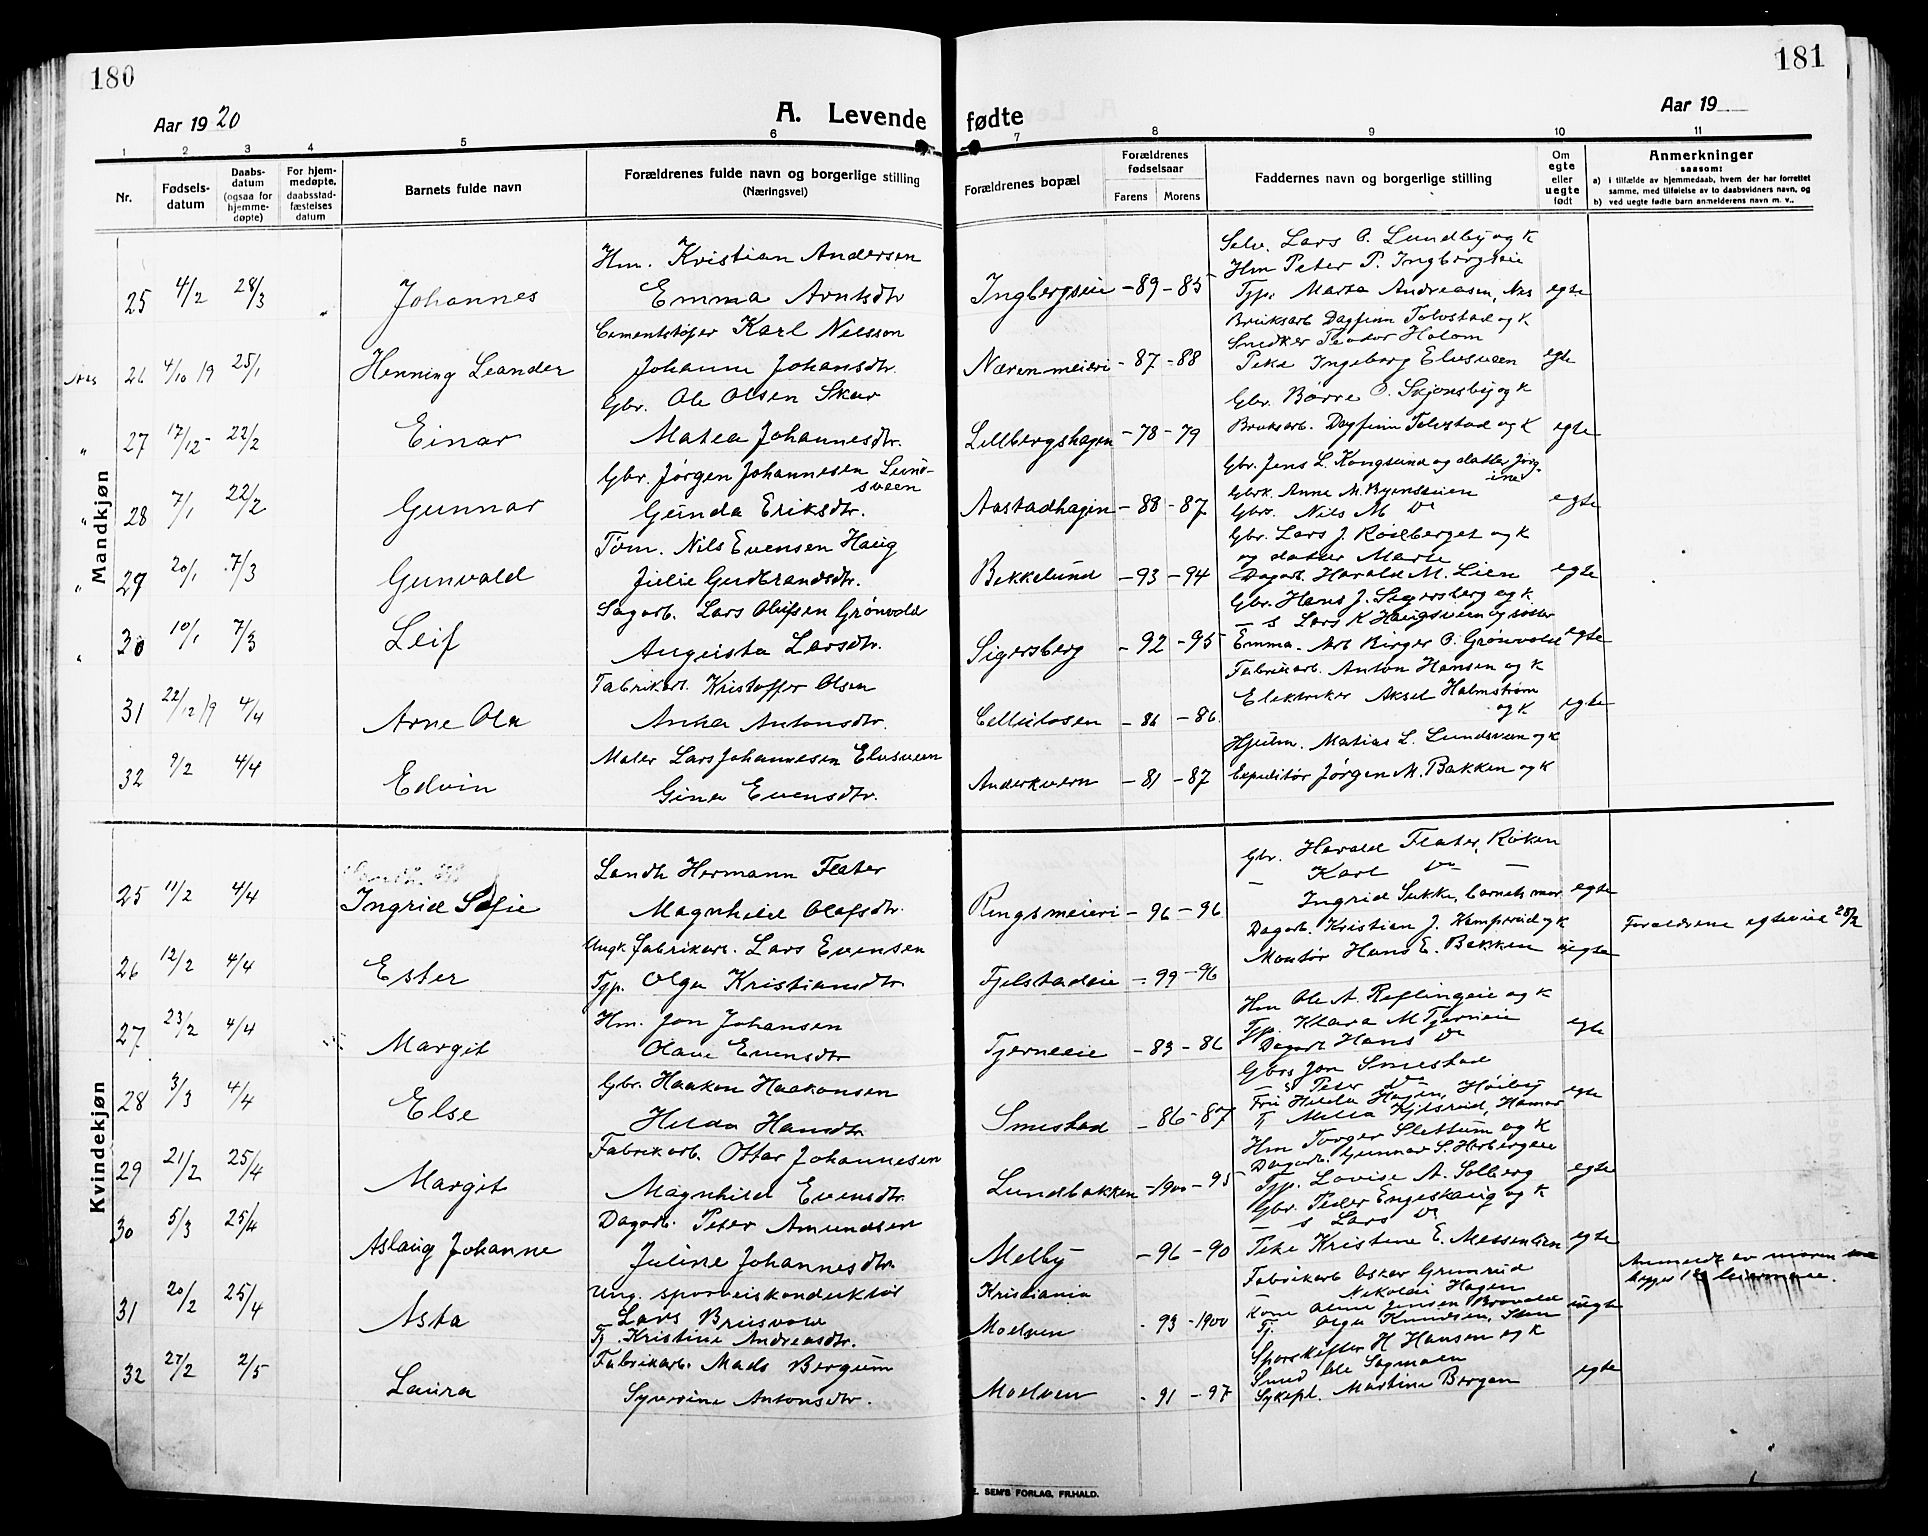 180
181
Aar 1920
A. Levende fødte
Aar 19
1 2 3 4 5 6 7 8 9 10 11
Nr.
Fødsels-
datum
Daabs-
datum
(ogsaa for
hjemme-
døpte)
For hjem-
medøpte,
daabsstad-
fæstelses
datum
Barnets fulde navn
Forældrenes fulde navn og borgerlige stilling
(Næringsvei)
Forældrenes bopæl
Forældrenes
fødselsaar
Farens Morens
Faddernes navn og borgerlige stilling
Om
egte
eller
uegte
født
Anmerkninger
saasom:
a) i tilfælde av hjemmedaab, hvem der har forrettet
samme, med tilføielse av to daabsvidners navn, og
b) ved uegte fødte barn anmelderens navn m. v..
Mandkjøn
Hm. Kristian Andersen
Selv. Lars O. Lundby og K
Hm Peter P. Ingbergseie
25 4/2 28/3 Johannes Emma Arntsdtr Ingbergseie -89 -85 Tjp. Marta Andreasen, Nes egte
Cementstøper Karl Nilsson
Bruksarb Dagfinn Tolvstad og K
Snedker Teodor Holom
Nes 26 4/10 19 25/1 Henning Leander Johanne Johansdtr. Næren meieri -87 -88 Pike Ingeborg Elvsveen egte
Gbr. Ole Olsen Skar
Gbr. Borre O. Skjønsby og K
" 27 17/12- 22/2 Einar Matea Johannesdtr. Lillbergshagen -78 -79 Bruksarb. Dagfinn Tolvstad og K egte
Gbr. Jørgen Johannesen Lund-
sveen
Gbr. Jens L. Kongslund og datter Jørg-
ine
Gbrk. Anne M. Byenseien
" 28 7/1 22/2 Gunnar Gunda Eriksdtr. Aastadhagen -88 -87 Gbrs. Nils M Do egte
Tøm. Nils Evensen Haug
Gbr. Lars J. Roselberget og K
og datter Marte
" 29 20/1 7/3 Gunvald Julie Gudbrandsdtr. Bekkelund -93 -94 Dagarb. Harald M. Lien egte
Sagarb. Lars Olufsen Grønvold
Gbr. Hans J. Sigersberg og K
— s Lars K Haugsveen og søster
" 30 10/1 7/3 Leif Augusta Larsdtr. Sigersberg -92 -95 Emma. Arb Birger O. Grønvold egte
Fabrikarb. Kristoffer Olsen
Fabrikarb. Anton Hansen og K
31 22/12 19 4/4 Arne Ola Anna Antonsdtr. Cellulosen -86 -86. Elektriker Aksel Holmstrøm
og K egte
Maler Lars Johannesen Elvsveen
Hjulm. Matias L. Lundsveen og K
32 9/2 4/4 Edvin Gina Evensdtr. Anderkvern -81 -87 Expeditør Jørgen M. Bakken og K
Kvindekjøn
Landh Hermann Flater
Gbr. Harald Flater, Roken
— Karl Do —
25 11/2 4/4 Ingrid Sofie Magnhild Olafsdtr. Ringsmeieri -96 -96 Ingrid Sukke, barnets mor egte
Ungk. fabrikarb. Lars Evensen
Dagarb. Kristian J. Kamprud og K
Forældrene egteviet 28/2
26 12/2 4/4 Ester Tjp. Olga Kristiansdtr. Fjelstadeie -99 -96 Montør Hans E. Bakken uegte
Hm. Jon Johansen
Hm Ole A. Reflingeie og K
Tjp. Klara M Tjerneie
27 23/2 4/4 Margit Olave Evensdtr Tjerneeie -83 -86 Dagarb Hans Do egte
Gbr. Haakon Haakonsen
Gbrs Jon Smestad
— s Peter Do
28 3/3 4/4 Else Helda Hansdtr Smestad -86 -87 Fru Helda Hagen, Høiby egte
Tj Milla Kjelsrud, Hamar
Fabrikarb. Ottar Johannesen
Hm Torger Slettum og K
Dagarb. Gunnar S. Horbergeie
29 21/2 25/4 Margit Magnhild Evensdtr. Lundbakken -1900 -95 Tjp. Lovise A. Solberg egte
Dagarb. Peter Amundsen
Gbr. Peder Engeshaug og K
— s Lars Do
30 5/3 25/4 Aslaug Johanne Juline Johannesdtr. Melby -96 -90 Pike Kristine E. Messenlien egte
Ung. sporveiskonduktør
Lars Brusvold
Kristiania
Fabrikarb Oskar Grimsrud
Nikolai Hagen
Anmeldt av moren
31 20/2 25/4 Asta Tj. Kristine Andreasdtr. Moelven -93 -1900 Kone Aline Jensen Brovold uegte
Tj. Olga Knudsen, Sten
Fabrikarb. Mads Bergum
Sporskifter H Hansen og K
Smed Ole Sagmoen
32 27/2 2/5 Laura Syverine Antonsdtr. Moelven -91 -97 Sykepl. Martine Borgen egte
E. SEM'S FORLAG, FR.HALD.